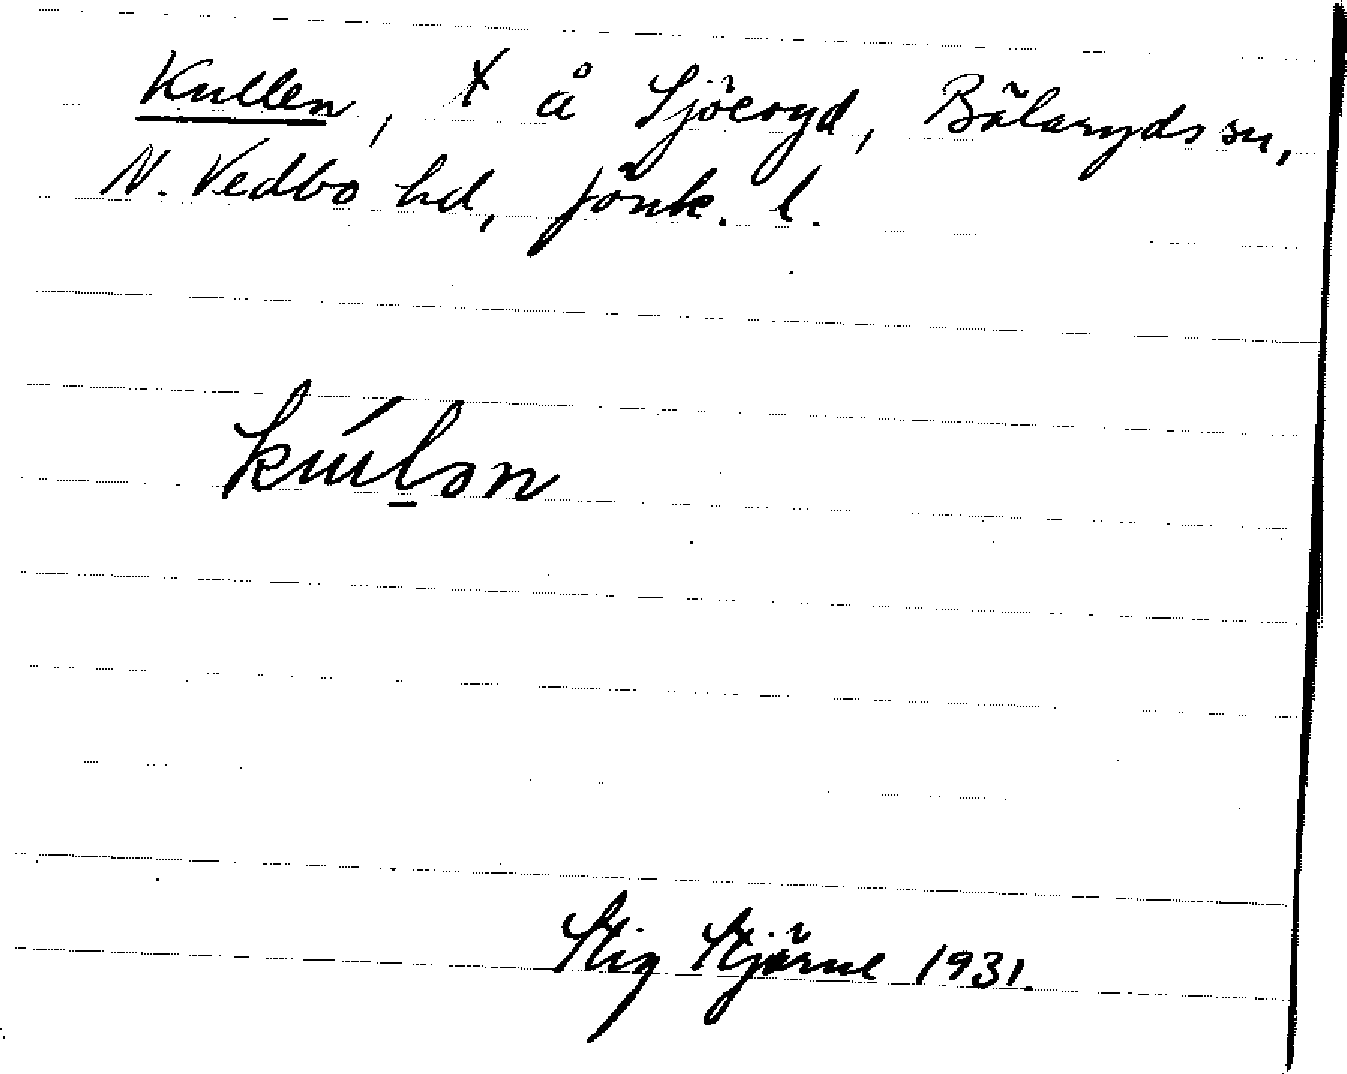 Kullen, X å Sjöeryd, Bälaryds sn,
N. Vedbo hd, Jönk. l.
kúlon
Stig Stjärne 1931.